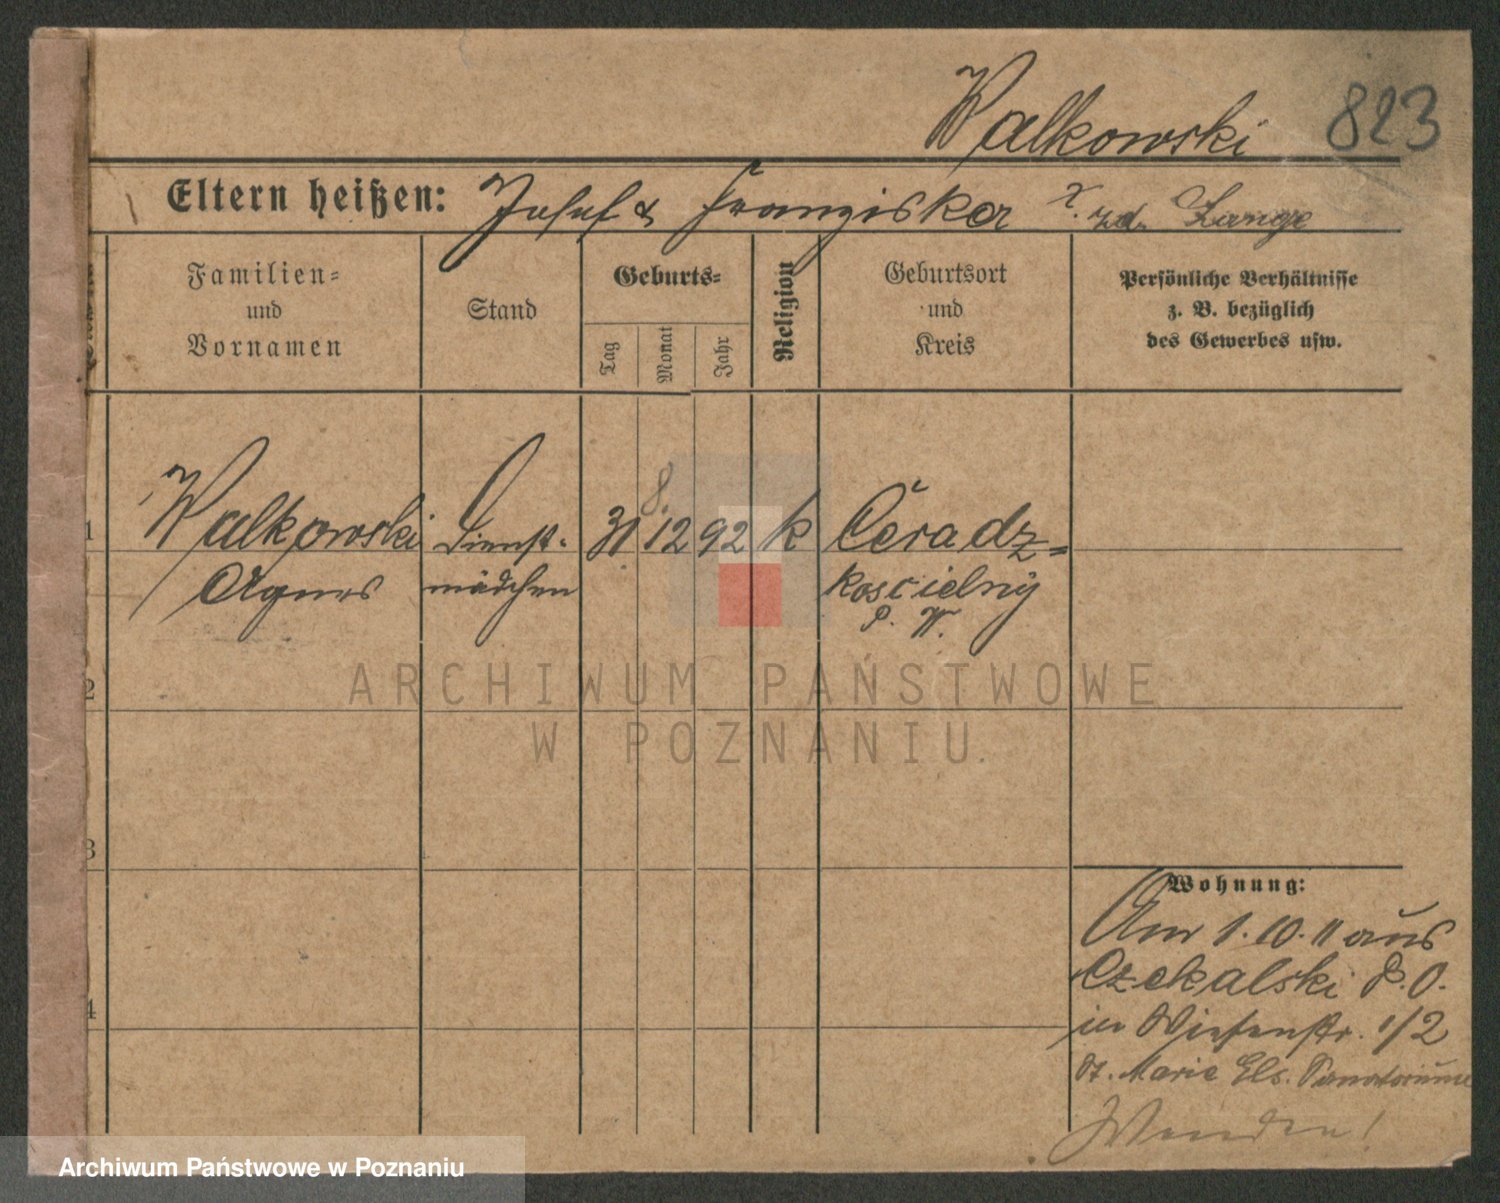 Walkowski 823
Eltern heißen: Josef & Franziska Lange
Familien=
und
Vornamen
Stand
Geburts=
Tag
Monat
Jahr
Religion
Geburtsort
und
Kreis
Persönliche Verhältnisse
z. B. bezüglich
des Gewerbes usw.
8.
1 Walkowski Dienst- 31 12 92 k Ceradz=
Agnes mädchen koscielny
P. W.
2
3
4
Wohnung:
Am 1. 10. 11 aus
Czekalski P. O.
in Wiesenstr. 1/2
St. Marie Els. Sanatorium
Wenden!
ARCHIWUM PAŃSTWOWE
W POZNANIU
Archiwum Państwowe w Poznaniu